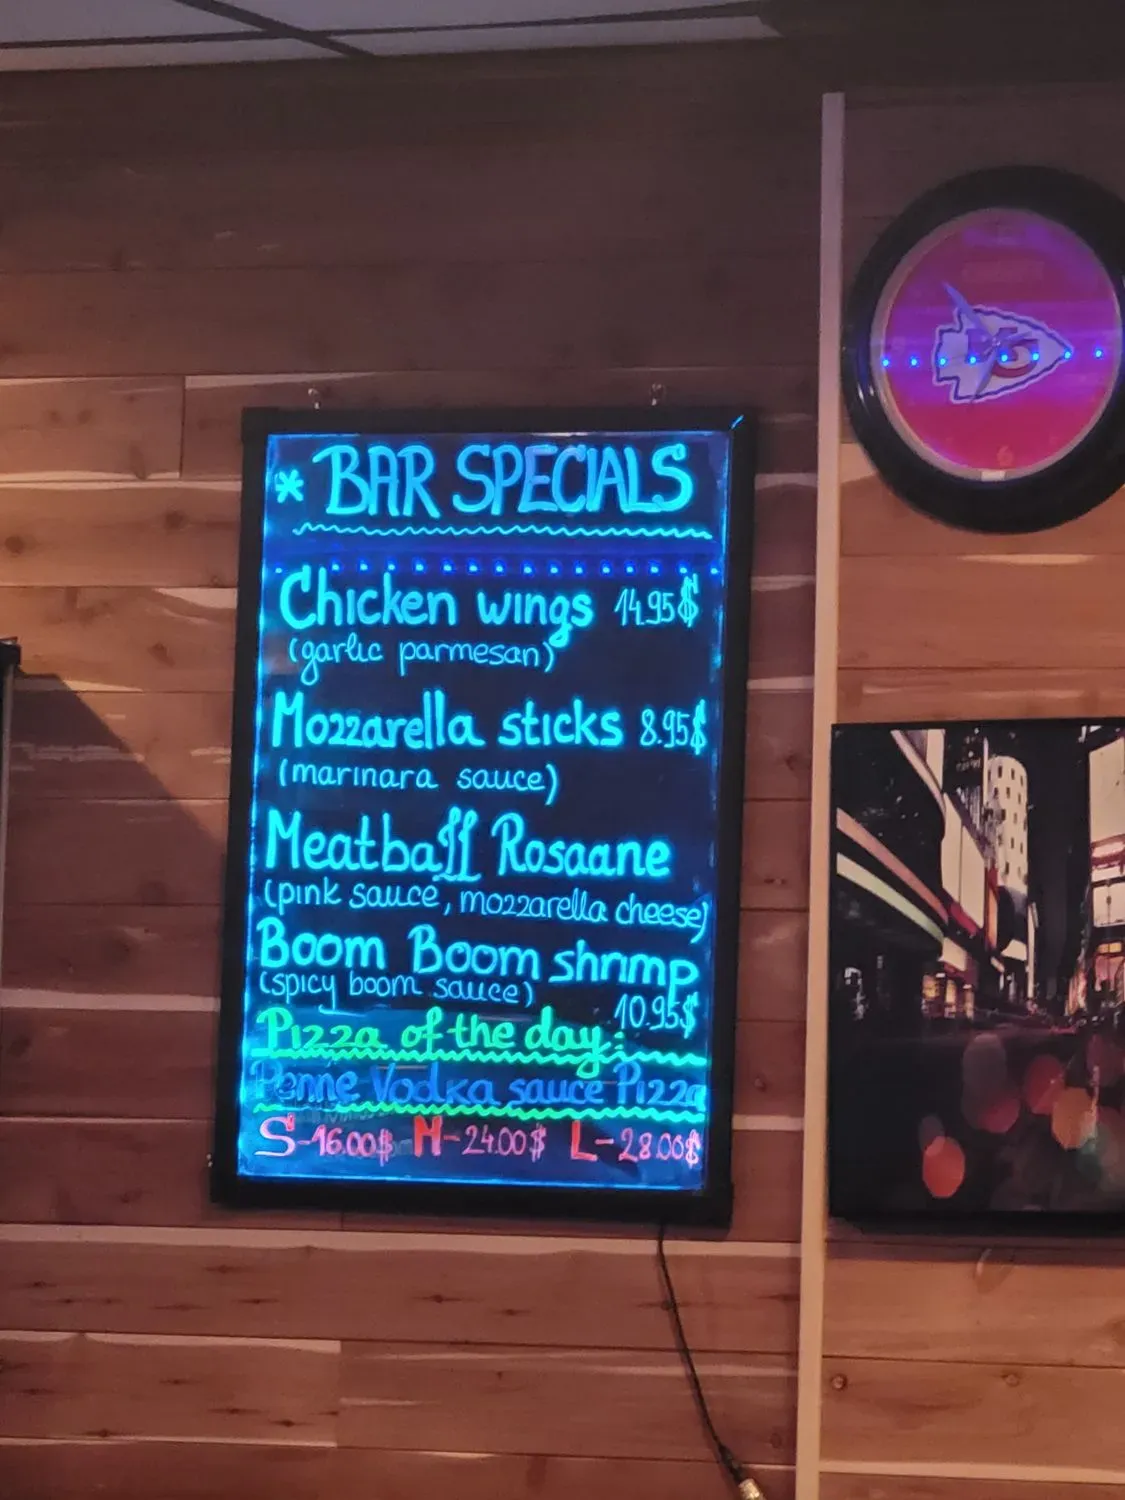 * BAR SPECIALS
Chicken wings 14.95$
(garlic parmesan)
Mozzarella sticks 8.95$
(marinara sauce)
Meatball Rosaane
(pink sauce, mozzarella cheese)
Boom Boom shrimp
(spicy boom sauce) 10.95$
Pizza of the day:
Penne Vodka sauce Pizza
S-16.00$ M-24.00$ L-28.00$
KC